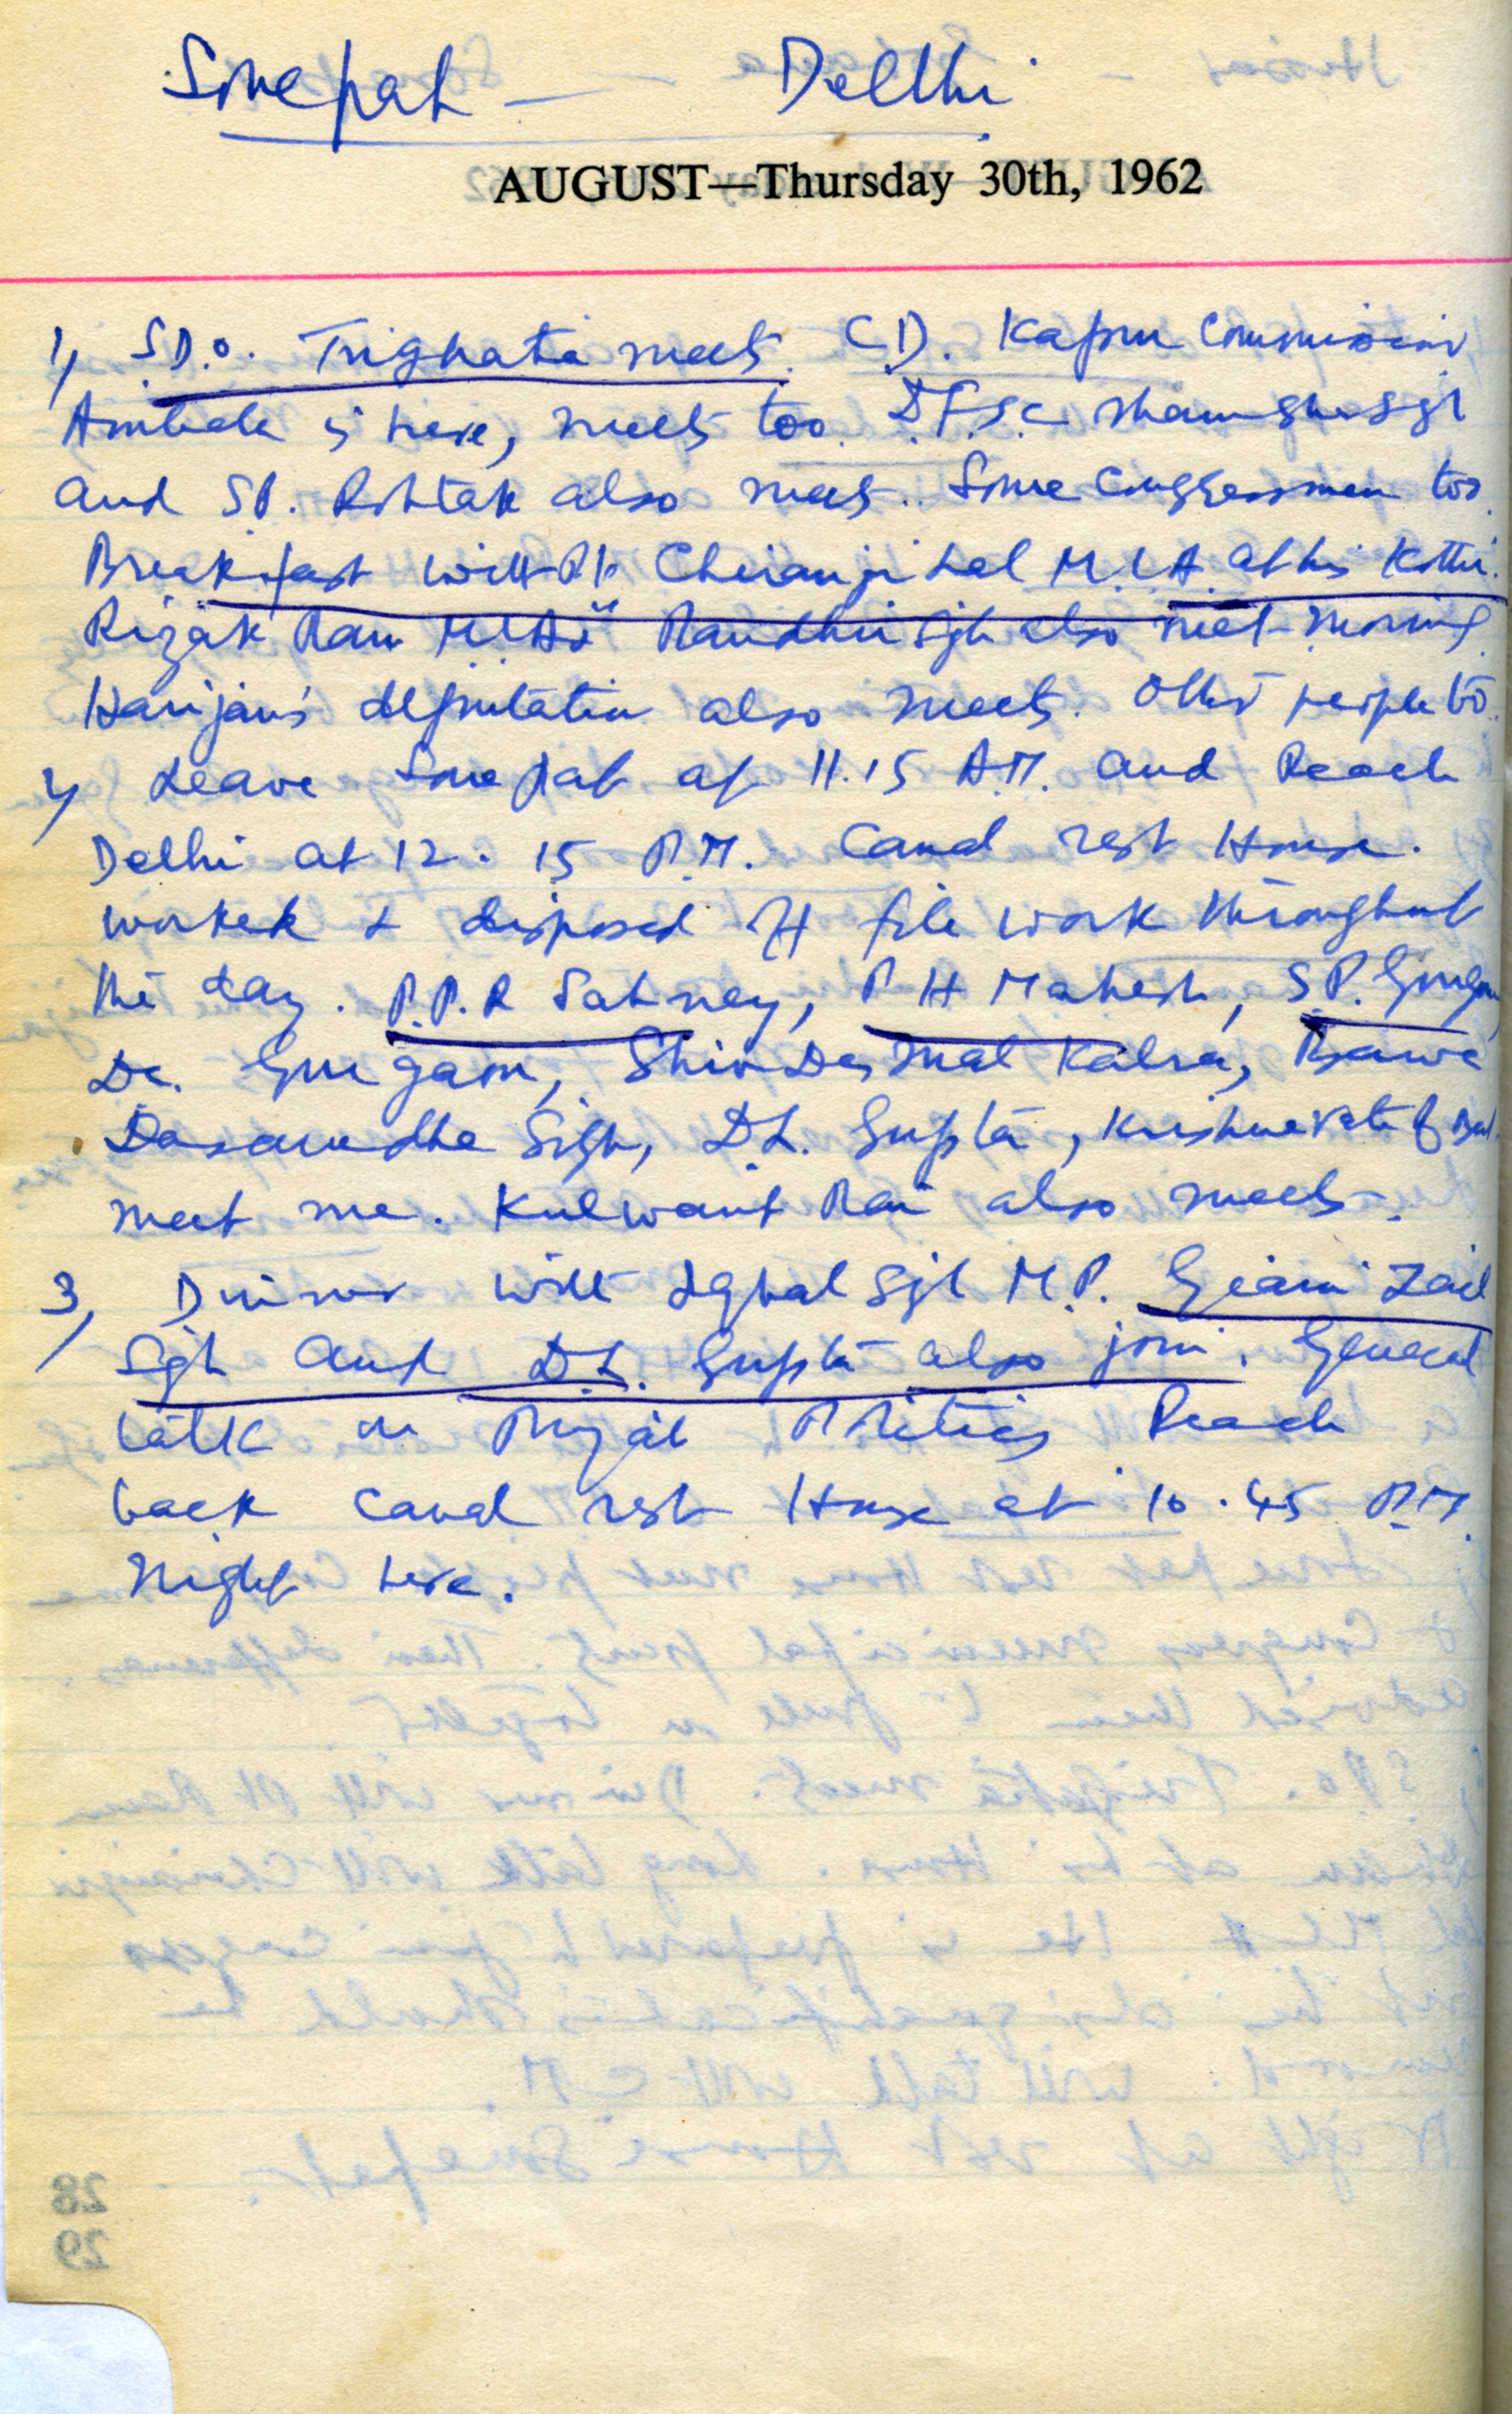 Sonepat — Delhi
AUGUST—Thursday 30th, 1962
1, S.D.O. Trighatia meets. C.D. Kapur Commissioner
Ambala is here, meets too. D.F.S.C. Sgh
and SP. Rohtak also meets. Some Congressmen too.
Breakfast with Pt. Chiranji Lal M.L.A. at his Kothi.
Rizak Ram M.L.A. Randhir Sgh also met morning.
Harijan's deputation also meets. Other people too.
2, Leave Sonepat at 11.15 A.M. and Reach
Delhi at 12.15 P.M. Canal rest House.
worked & disposed off file work throughout
the day. P.P.R Sahney, P H Mahesh, S.P. Gurgaon,
Dc. Gurgaon, Shiv Das Mal Kalra, Bawa
Dasaundha Sigh, D.L. Gupta, Krishna of
meet me. Kulwant Rai also meets.
3, Dinner with Iqbal Sgh M.P. Giani Zail
Sgh and D.L. Gupta also join. General
talk on Politics Reach
back canal rest House at 10.45 P.M.
Night here.
28
29